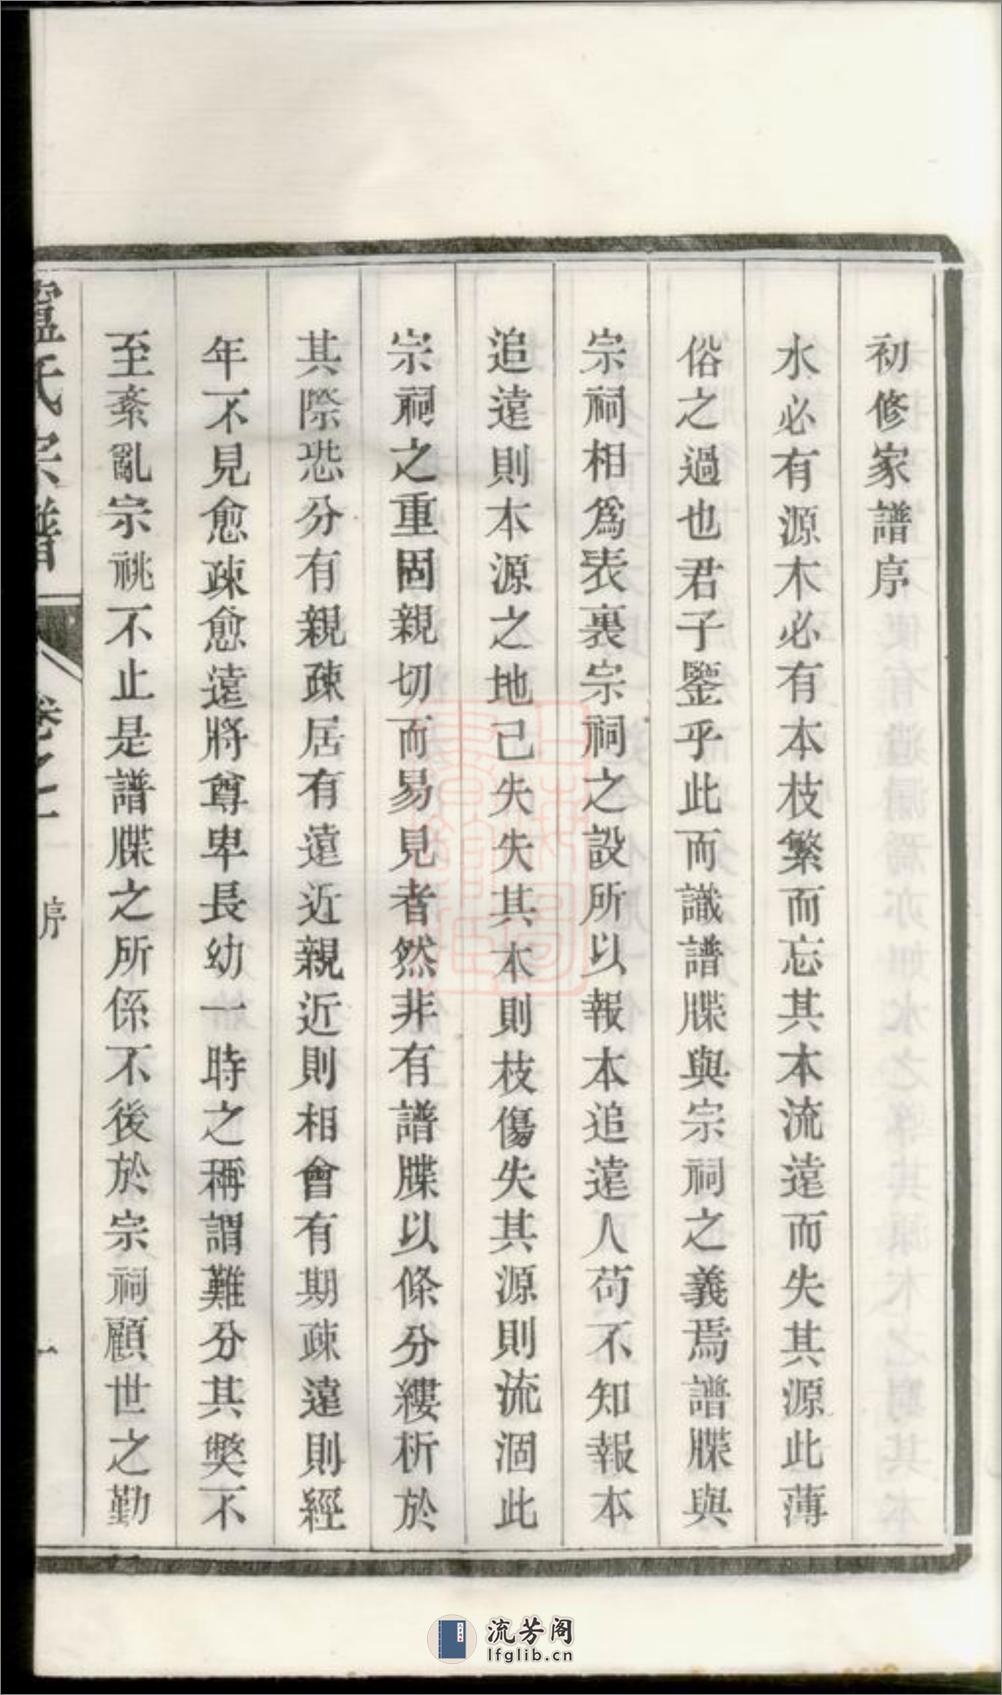 初修家譜序
水必有源木必有本枝繁而忘其本流遠而失其源此薄
俗之過也君子鑒乎此而識譜牒與宗祠之義焉譜牒與
宗祠相爲表裏宗祠之設所以報本追遠人苟不知報本
追遠則本源之地已失失其本則枝傷失其源則流涸此
宗祠之重固親切而易見者然非有譜牒以條分縷析於
其際恐分有親疎居有遠近親近則相會有期疎遠則經
年不見愈疎愈遠將尊卑長幼一時之稱謂難分其獘不
至紊亂宗祧不止是譜牒之所係不後於宗祠顧世之勤
盧氏宗譜
卷之一
序
一
流芳阁
lfglib.cn